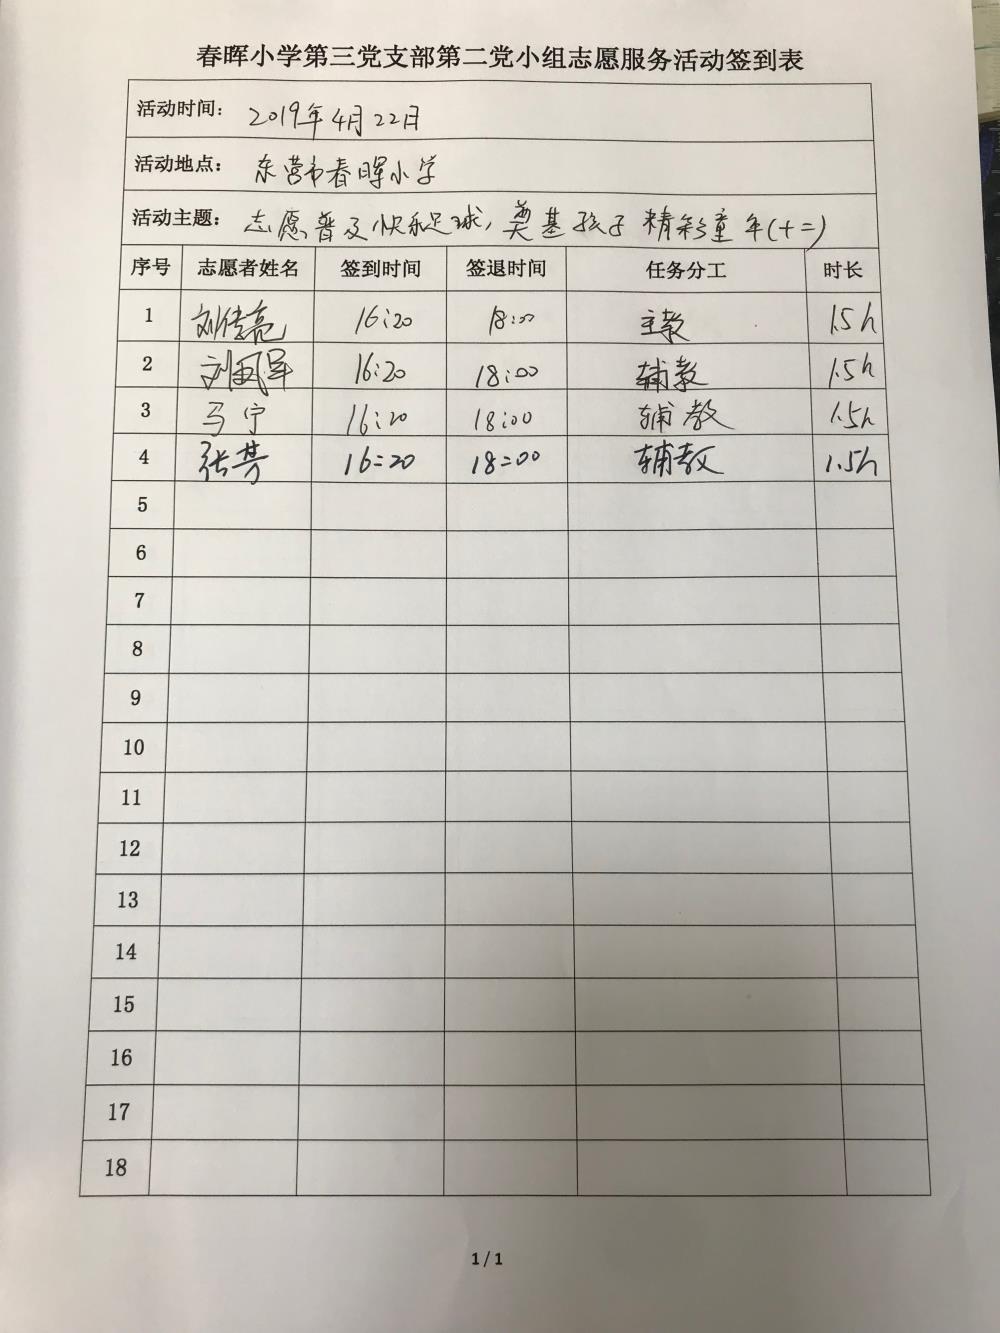 春晖小学第三党支部第二党小组志愿服务活动签到表
活动时间: 2019年4月22日
活动地点: 东营市春晖小学
活动主题: 志愿普及快乐足球,奠基孩子精彩童年(十二)
序号 志愿者姓名 签到时间 签退时间 任务分工 时长
1 刘传亮 16:20 18:00 主教 1.5h
2 刘凤军 16:20 18:00 辅教 1.5h
3 马宁 16:20 18:00 辅教 1.5h
4 张芳 16:20 18:00 辅教 1.5h
5
6
7
8
9
10
11
12
13
14
15
16
17
18
1 / 1